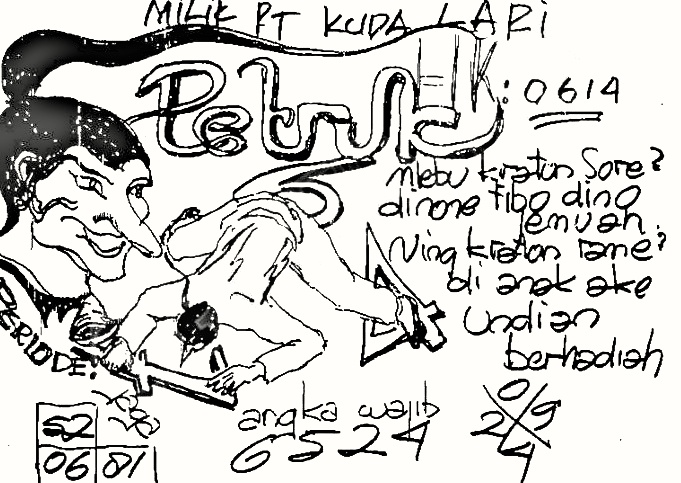 MILIK PT KUDA LARI
Petruk HK: 0614
Mlebu kraton Sore?
dinone tibo dino
jemuah.
Ning kraton rame?
di anak ake
undian
berhadiah
PERIODE:
52
06 81
angka wajib
6 5 2 4
0
2 9
4